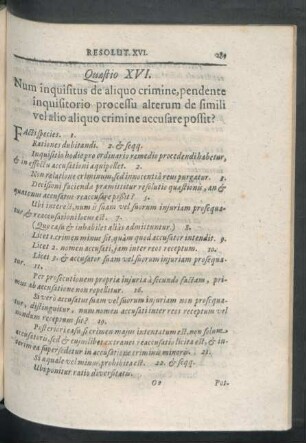 RESOLUT. XVI. 289
Quæstio XVI.
Num inquisitus de aliquo crimine, pendente
inquisitorio processu alterum de simili
vel alio aliquo crimine accusare possit?
FActi species. 1.
Rationes dubitandi. 2. & seqq.
Inquisitio hodie pro ordinario remedio procedendi habetur,
& in effectu accusationi æquipollet. 2.
Non relatione criminum sed innocentia reus purgatur. 3.
Decisioni faciendæ præmittitur resolutio quæstionis, an &
quatenus accusatus reaccusare possit? 3.
Ubi interest, num is suam vel suorum injuriam prosequa-
tur, & reaccusationi locus est. 7.
(Quo casu & inhabiles aliàs admittuntur.) 8.
Licet 1. crimen minus sit, quàm quod accusator intendit. 9.
Licet 2. nomen accusati, jam inter reos receptum. 10.
Licet 3. & accusator suam vel suorum injuriam prosequa-
tur. 11.
Per prosecutionem propriæ injuriæ à secundo factam, pri-
mus ab accusatione non repellitur.
Si verò accusatus suam vel suorum injuriam non prosequa-
tur, distinguitur, num nomen accusati inter reos receptum vel
nondum receptum sit? 19.
Posteriori casu si crimen majus intentatum est, non solum
accusatoris, sed & cujuslibet extranei reaccusatio licita est, & in-
terim ea supersedetur in accusatione criminis minoris. 21.
Si æquale vel minus, prohibita est. 22. & seqq.
Ubi ponitur ratio diversitatis.
Oo Pos-